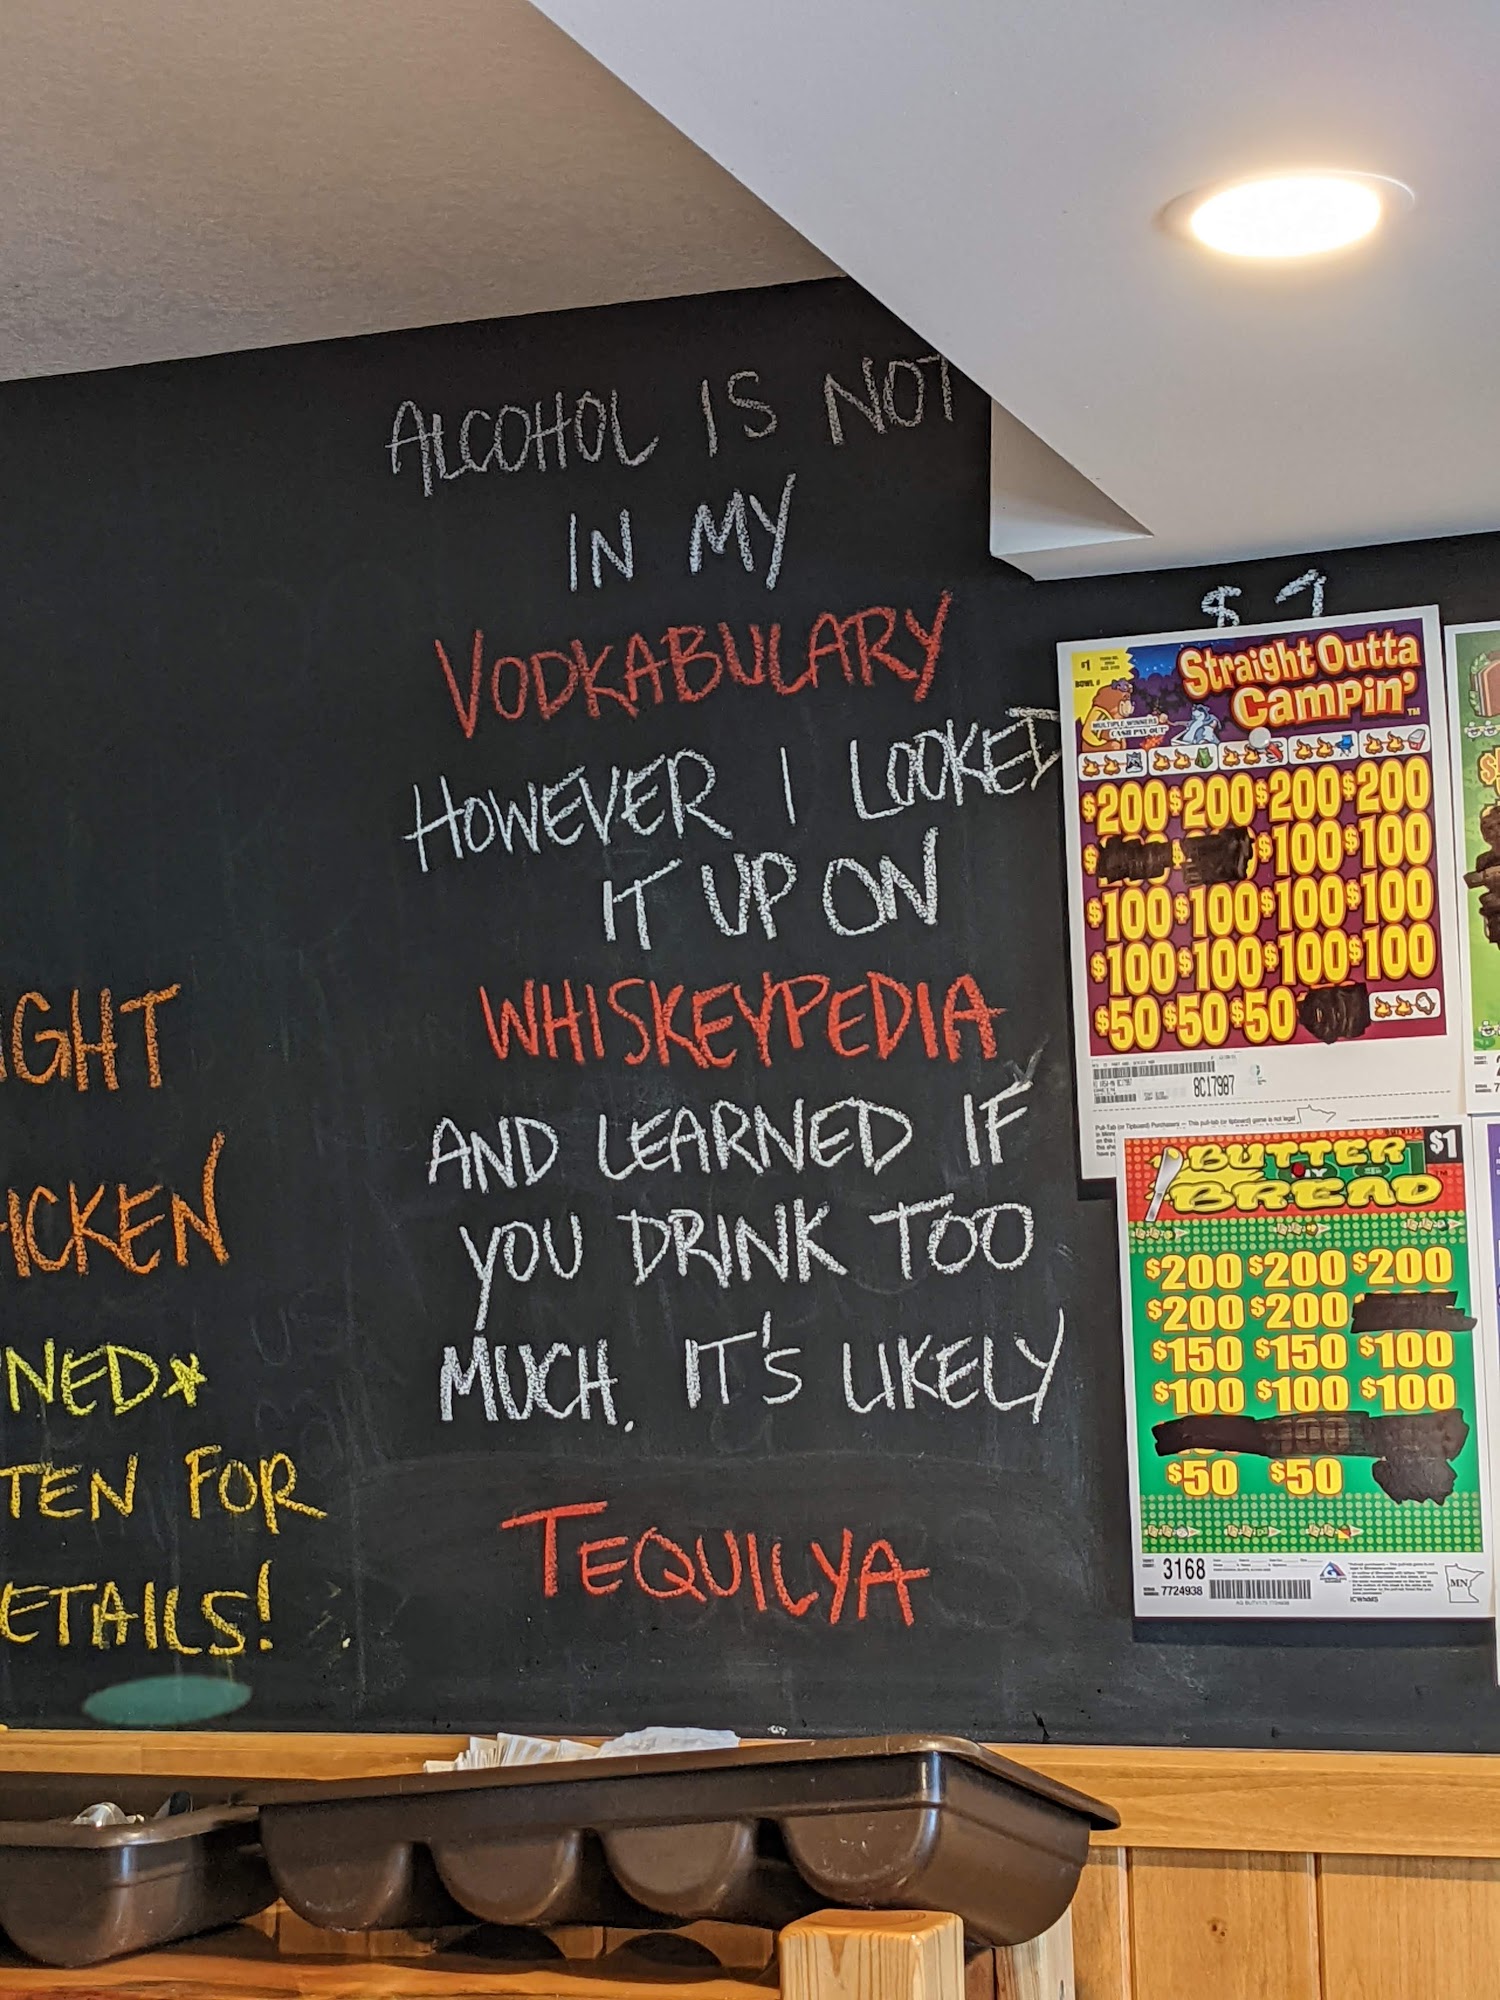 ALCOHOL IS NOT
IN MY
VODKABULARY
HOWEVER I LOOKED
IT UP ON
WHISKEYPEDIA
AND LEARNED IF
YOU DRINK TOO
MUCH. IT'S LIKELY
TEQUILYA
IGHT
ICKEN
NED*
TEN FOR
ETAILS!
$1
BOWL #
Straight Outta
Campin'™
MULTIPLE WINNERS
CASH PAY OUT
$200 $200 $200 $200
$100 $100
$100 $100 $100 $100
$100 $100 $100 $100
$50 $50 $50
8C17987
$1
BUTTER
BREAD
$200 $200 $200
$200 $200
$150 $150 $100
$100 $100 $100
$50 $50
3168
7724938
MN